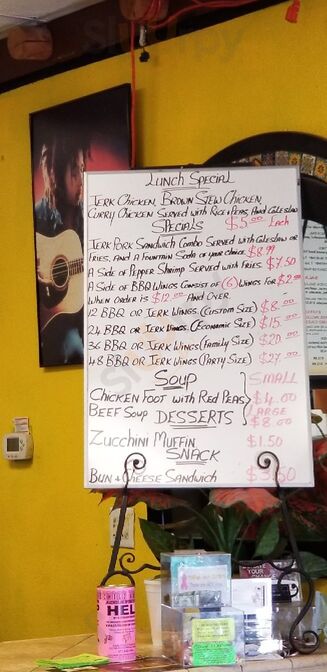 Lunch Special
Jerk Chicken, Brown Stew Chicken,
Curry Chicken Served with Rice & Peas, And Coleslaw
Specials $5.00 Each
Jerk Pork Sandwich Combo Served with Coleslaw or
Fries, and A Fountain Soda of your choice $8.99
A Side of Pepper Shrimp Served with fries $7.50
A Side of BBQ Wings Consist of (6) Wings for $2.
When order is $12.00 And Over
12 BBQ or Jerk Wings (Custom Size) $8.00
24 BBQ or Jerk Wings (Economic Size) $15.00
36 BBQ or Jerk Wings (Family Size) $20.00
48 BBQ or Jerk Wings (Party Size) $27.00
Soup Small
Chicken Foot with Red Peas $4.00
Beef Soup Large
Desserts $8.00
Zucchini Muffin $1.50
Snack
Bun & Cheese Sandwich $3.50
HEL